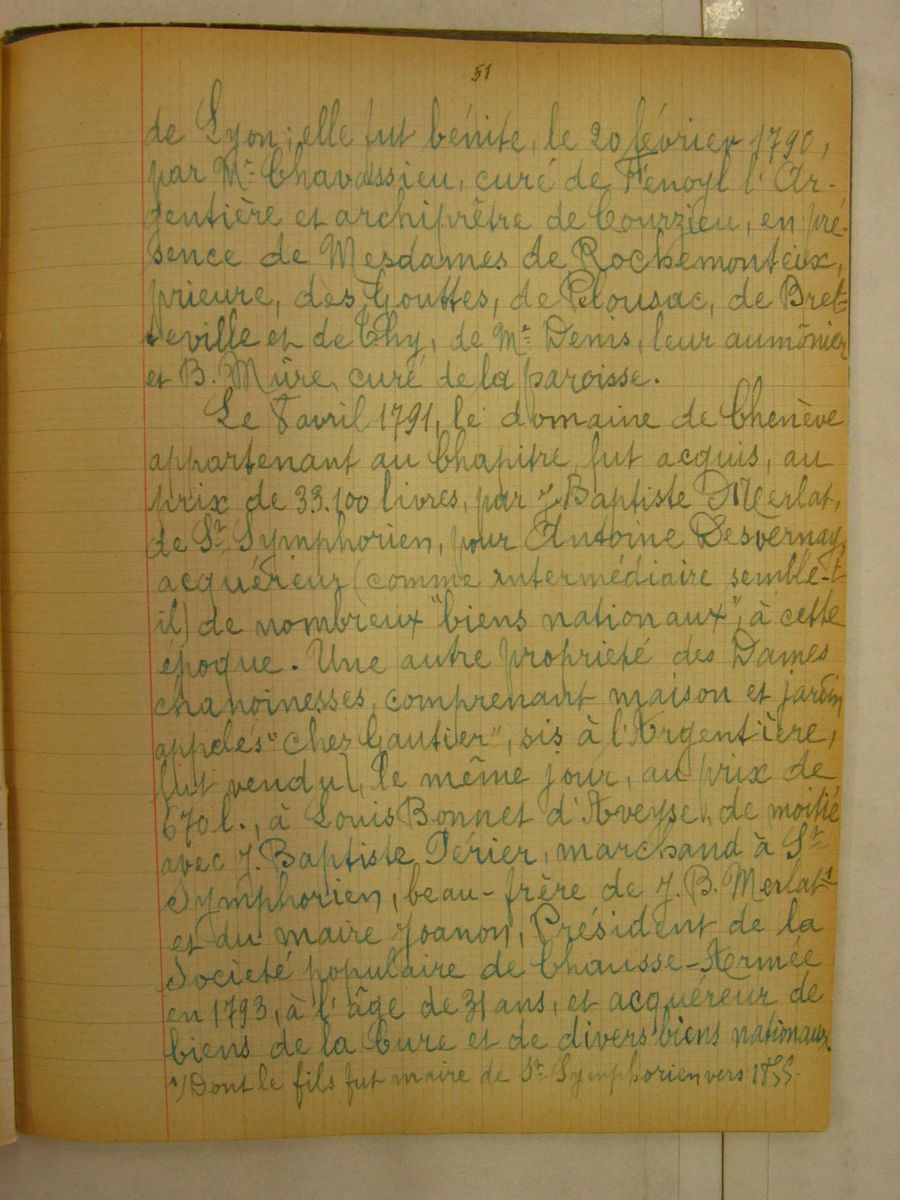 51
de Lyon; elle fut bénite, le 20 février 1790,
par Mr Chavassieu, curé de Fenoyl l'Ar-
gentière et archiprêtre de Courzieu, en pré-
sence de Mesdames de Rochemonteix,
prieure, des Gouttes, de Pelousac, de Bret-
teville et de Chy, de Mr Denis, leur aumônier
et B. Mûre, curé de la paroisse.
Le 8 avril 1791, le domaine de Chenève
appartenant au Chapitre, fut acquis, au
prix de 33.100 livres, par J. Baptiste Merlat,
de St Symphorien, pour Antoine Desvernay,
acquéreur (comme intermédiaire semble-t
il) de nombreux "biens nationaux", à cette
époque. Une autre propriété des Dames
chanoinesses, comprenant maison et jardin
appelés "Chez Gautier", sis à l'Argentière,
fut vendu, le même jour, au prix de
670 l., à Louis Bonnet d'Aveyse, de moitié
avec J. Baptiste Périer, marchand à St
Symphorien, beau-frère de J. B. Merlat 1
et du maire Joanon, Président de la
Société populaire de Chausse-Armée
en 1793, à l'âge de 31 ans, et acquéreur de
biens de la Cure et de divers biens nationaux.
1) Dont le fils fut maire de St Symphorien vers 1855.